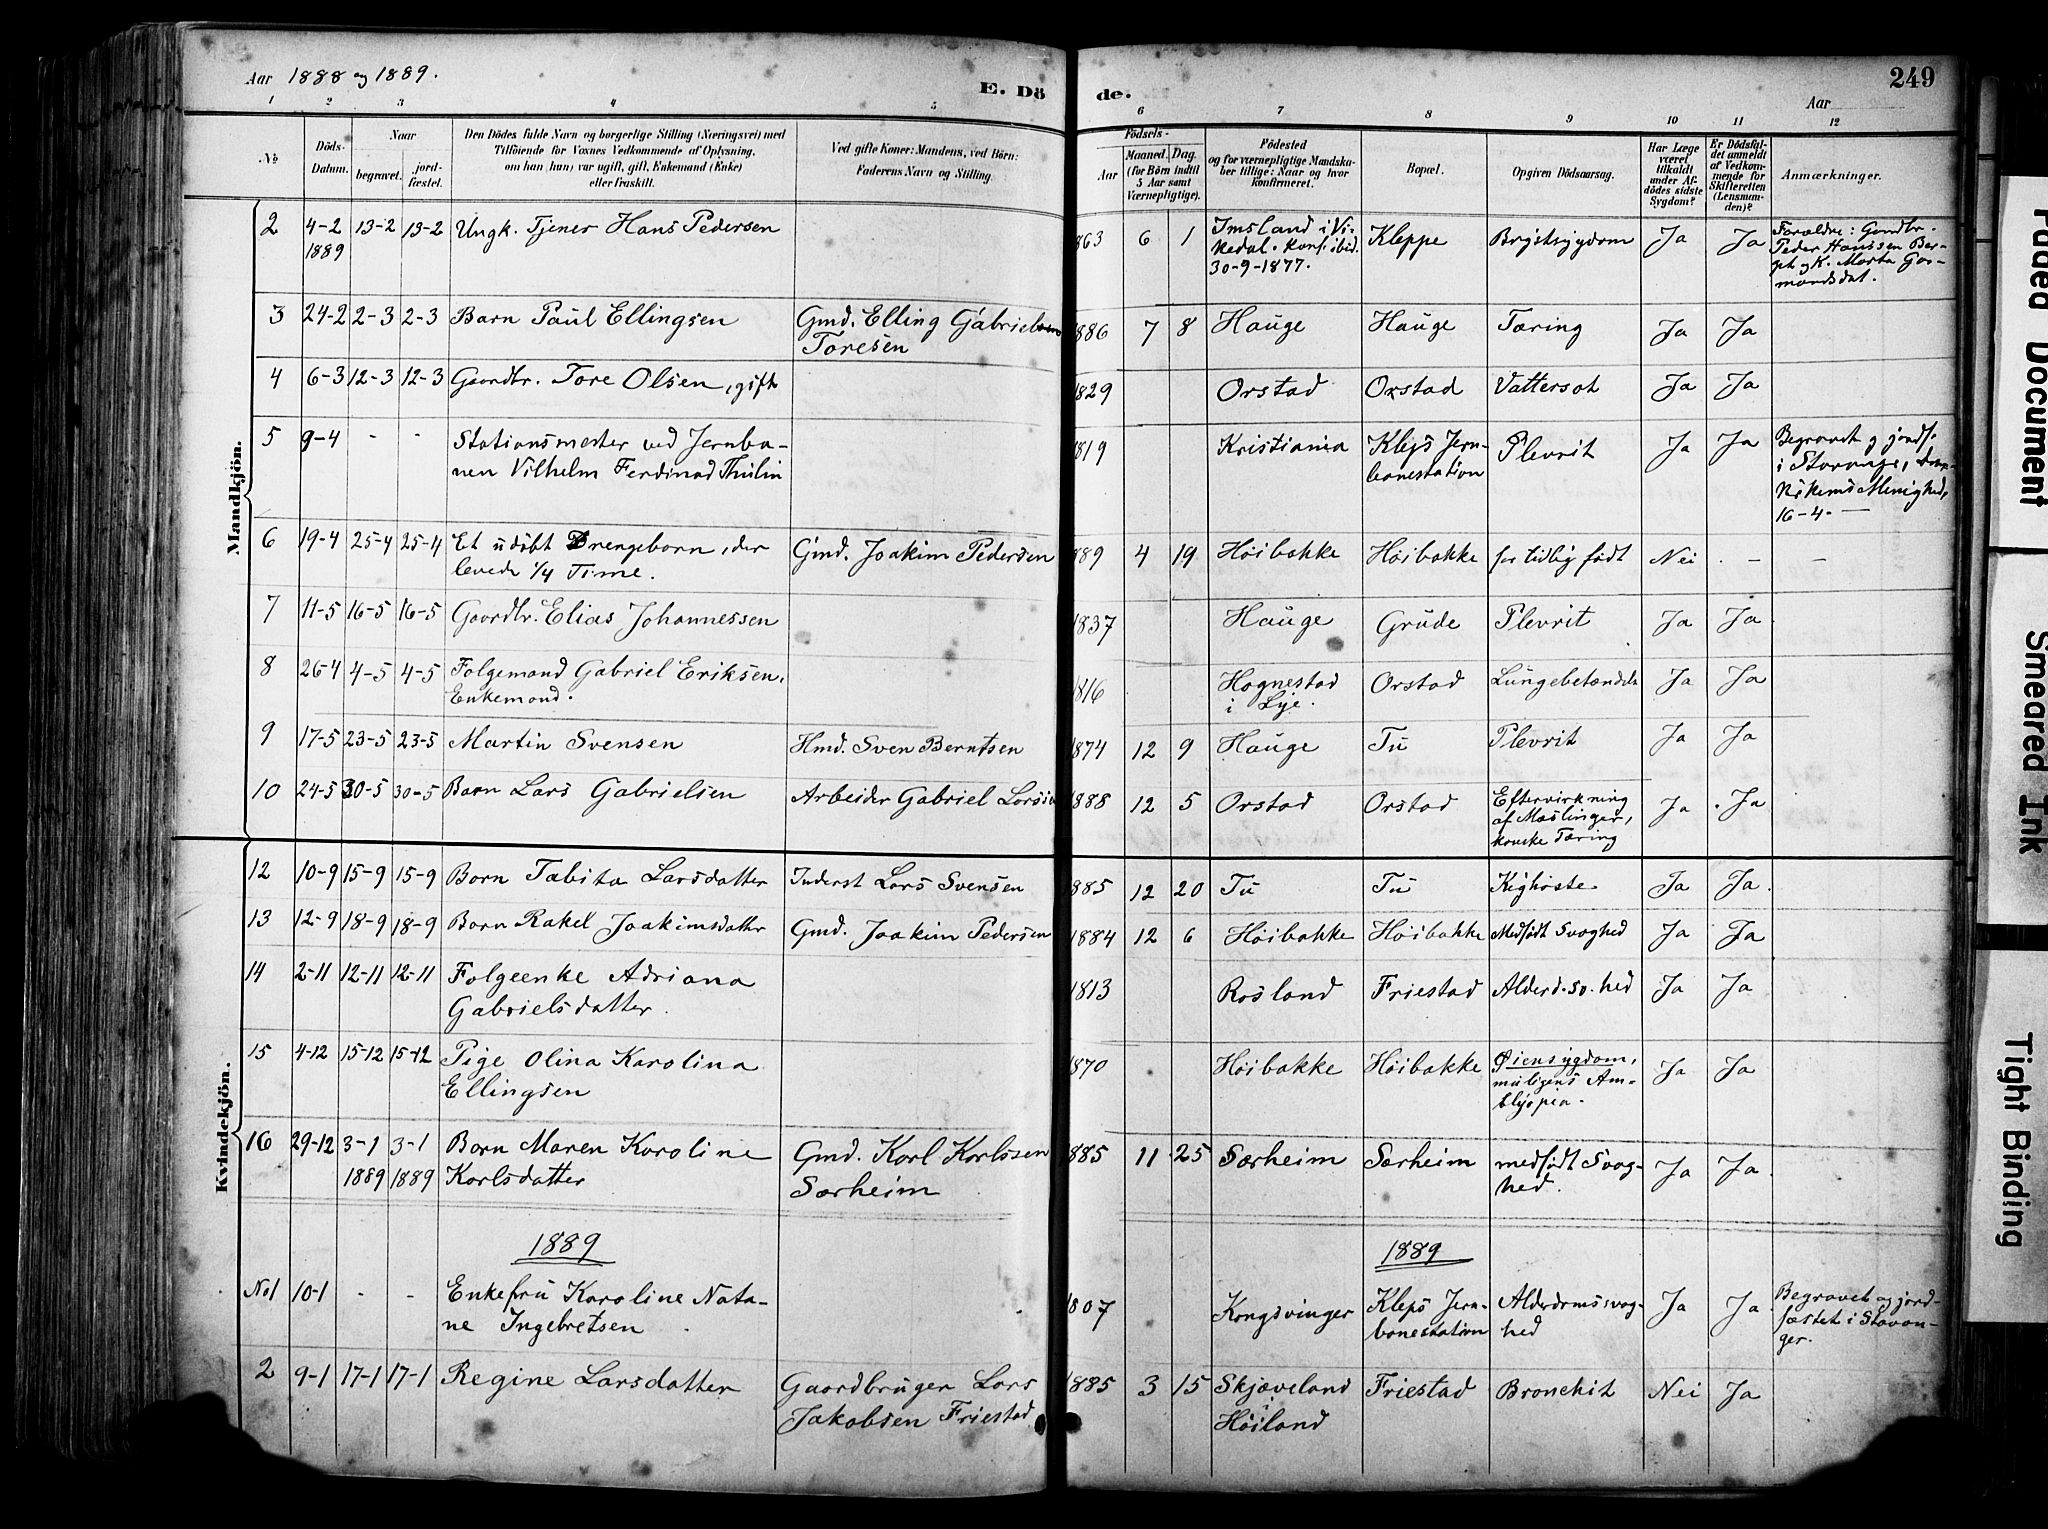 Aar 1888 og 1889.
E. Dö de.
249
Aar
1 2 3 4 5 6 7 8 9 10 11 12
No
Döds-
Datum.
Naar
begravet.
jord-
fæstet.
Den Dödes fulde Navn og borgerlige Stilling (Næringsvei) med
Tilföiende for Voxnes Vedkommende af Oplysning,
om han (hun) var ugift, gift, Enkemand (Enke)
eller fraskilt.
Ved gifte Koner: Mandens, ved Börn:
Faderens Navn og Stilling.
Födsels-
Aar
Maaned. Dag.
(for Börn indtil
5 Aar samt
Værnepligtige).
Födested
og for værnepligtige Mandska-
ber tillige: Naar og hvor
konfirmeret.
Bopæl.
Opgiven Dödsaarsag.
Har Læge
været
tilkaldt
under Af-
dödes sidste
Sygdom?
Er Dödsfal-
det anmeldt
af Vedkom-
mende for
Skifteretten
(Lensman-
den)?
Anmærkninger.
Mandkjön.
2 4-2 13-2 13-2 Ungk. Tjener Hans Pedersen 1863 6 1 Imsland i Vi- Kleppe Brystsygdom Ja Ja Forældre: Gaardbr.
1889 kedal. Konf. ibid. Peder Hanssen Ber-
30-9-1877. get og K. Marta Gas-
mandsdat.
3 24-2 2-3 2-3 Barn Paul Ellingsen Gmd. Elling Gabrielsen 1886 7 8 Hauge Hauge Tæring Ja Ja
Toresen
4 6-3 12-3 12-3 Gaardbr. Tore Olsen, gift 1829 Orstad Orstad Vattersot Ja Ja
5 9-4 - - Stationsmester ved Jernba- 1819 Kristiania Kleps Jern- Plevrit Ja Ja Begravet og jordf.
nen Vilhelm Ferdinad Thulin banestation i Stavanger,
Menighed,
16-4.
6 19-4 25-4 25-4 Et udöbt Drengebarn, der Gmd. Joakim Pedersen 1889 4 19 Höibakke Höibakke for tidlig födt Nei - -
levede 1/4 Time.
7 11-5 16-5 16-5 Gaardbr. Elias Johannessen 1837 Hauge Grude Plevrit Ja Ja
8 26-4 4-5 4-5 Folgemand Gabriel Eriksen, 1816 Hognestad Orstad Lungebetændelse Ja Ja
Enkemand. i Lye.
9 17-5 23-5 23-5 Martin Svensen Hmd. Sven Berntsen 1874 12 9 Hauge Tu Plevrit Ja Ja
10 24-5 30-5 30-5 Barn Lars Gabrielsen Arbeider Gabriel Larsen 1888 12 5 Orstad Orstad Eftervirkning Ja Ja
af Mæslinger,
kanske Tæring
Kvindekjön.
12 10-9 15-9 15-9 Barn Tabita Larsdatter Inderst Lars Svensen 1885 12 20 Tu Tu Kighoste Ja Ja
13 12-9 18-9 18-9 Barn Rakel Joakimsdatter Gmd. Joakim Pedersen 1884 12 6 Höibakke Höibakke Medfödt Svaghed Ja Ja
14 2-11 12-11 12-11 Folgeenke Adriana 1813 Rosland Friestad Alderd. sv. hed Ja Ja
Gabrielsdatter.
15 4-12 15-12 15-12 Pige Olina Karolina 1870 Höibakke Höibakke Øiensygdom, Ja Ja
Ellingsen muligens Am-
blyopea.
16 29-12 3-1 3-1 Barn Maren Karoline Gmd. Karl Karlssen 1885 11 25 Særheim Særheim medfödt Svag- Ja Ja
1889 1889 Karlsdatter Særheim hed.
1889 1889
No1 10-1 - - Enkefru Karoline Nata- 1807 Kongsvinger Kleps Jern- Alderdomssvag- Ja Ja Begravet og jord-
ne Ingebretsen banestation hed fæstet i Stavan-
ger.
2 9-1 17-1 17-1 Regine Larsdatter Gaardbruger Lars 1885 3 15 Skjæveland Friestad Bronchit Nei Ja
Jakobsen Friestad i Höiland
Faded Document
Smeared Ink
Tight Binding